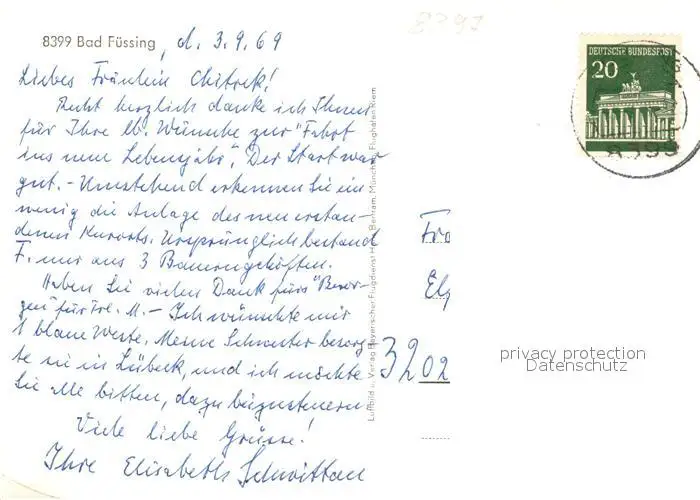 8399 Bad Füssing, d. 3.9.69
Liebes Fräulein
Recht herzlich danke ich Ihnen
für Ihre lb. Wünsche zur "Fahrt
ins neue Lebensjahr". Der Start war
gut. - Umstehend erkennen Sie ein
wenig die Anlage des neu erstan-
denen Kurorts. Ursprünglich bestand
F. nur aus 3 Bauerngehöften.
Haben Sie vielen Dank fürs "Besor-
gen" für Frl. M. - Ich wünschte mir
1 blaue Weste. Meine Schwester besorg-
te sie in Lübeck, und ich möchte
Sie alle bitten, dazu beizusteuern.
Viele liebe Grüsse!
Ihre Elisabeth Schwittau
Luftbild u. Verlag Bayerischer Flugdienst H. Bertram, München, Flughafen Riem
DEUTSCHE BUNDESPOST
20
8399
3202
privacy protection
Datenschutz